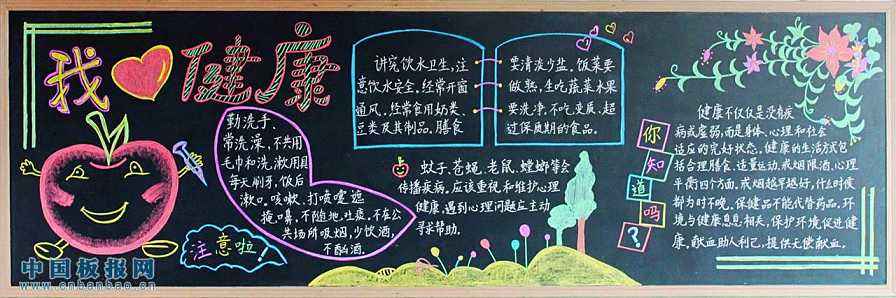 我 健康
勤洗手、
常洗澡,不共用
毛巾和洗漱用具
每天刷牙,饭后
漱口,咳嗽、打喷嚏遮
掩口鼻,不随地吐痰,不在公
共场所吸烟,少饮酒,
不酗酒.
注意啦!
讲究饮水卫生,注
意饮水安全.经常开窗
通风.经常食用奶类、
豆类及其制品.膳食
要清淡少盐.饭菜要
做熟,生吃蔬菜水果
要洗净,不吃变质、超
过保质期的食品。
蚊子、苍蝇、老鼠、蟑螂等会
传播疾病,应该重视和维护心理
健康,遇到心理问题应主动
寻求帮助.
你
知
道
吗
?
健康不仅仅是没有疾
病或虚弱,而是身体、心理和社会
适应的完好状态。健康的生活方式包
括合理膳食、适量运动、戒烟限酒、心理
平衡四个方面,戒烟越早越好,什么时候
都为时不晚,保健品不能代替药品,环
境与健康息息相关,保护环境促进健
康。献血助人利己,提倡无偿献血。
中国板报网
www.cnbanbao.cn